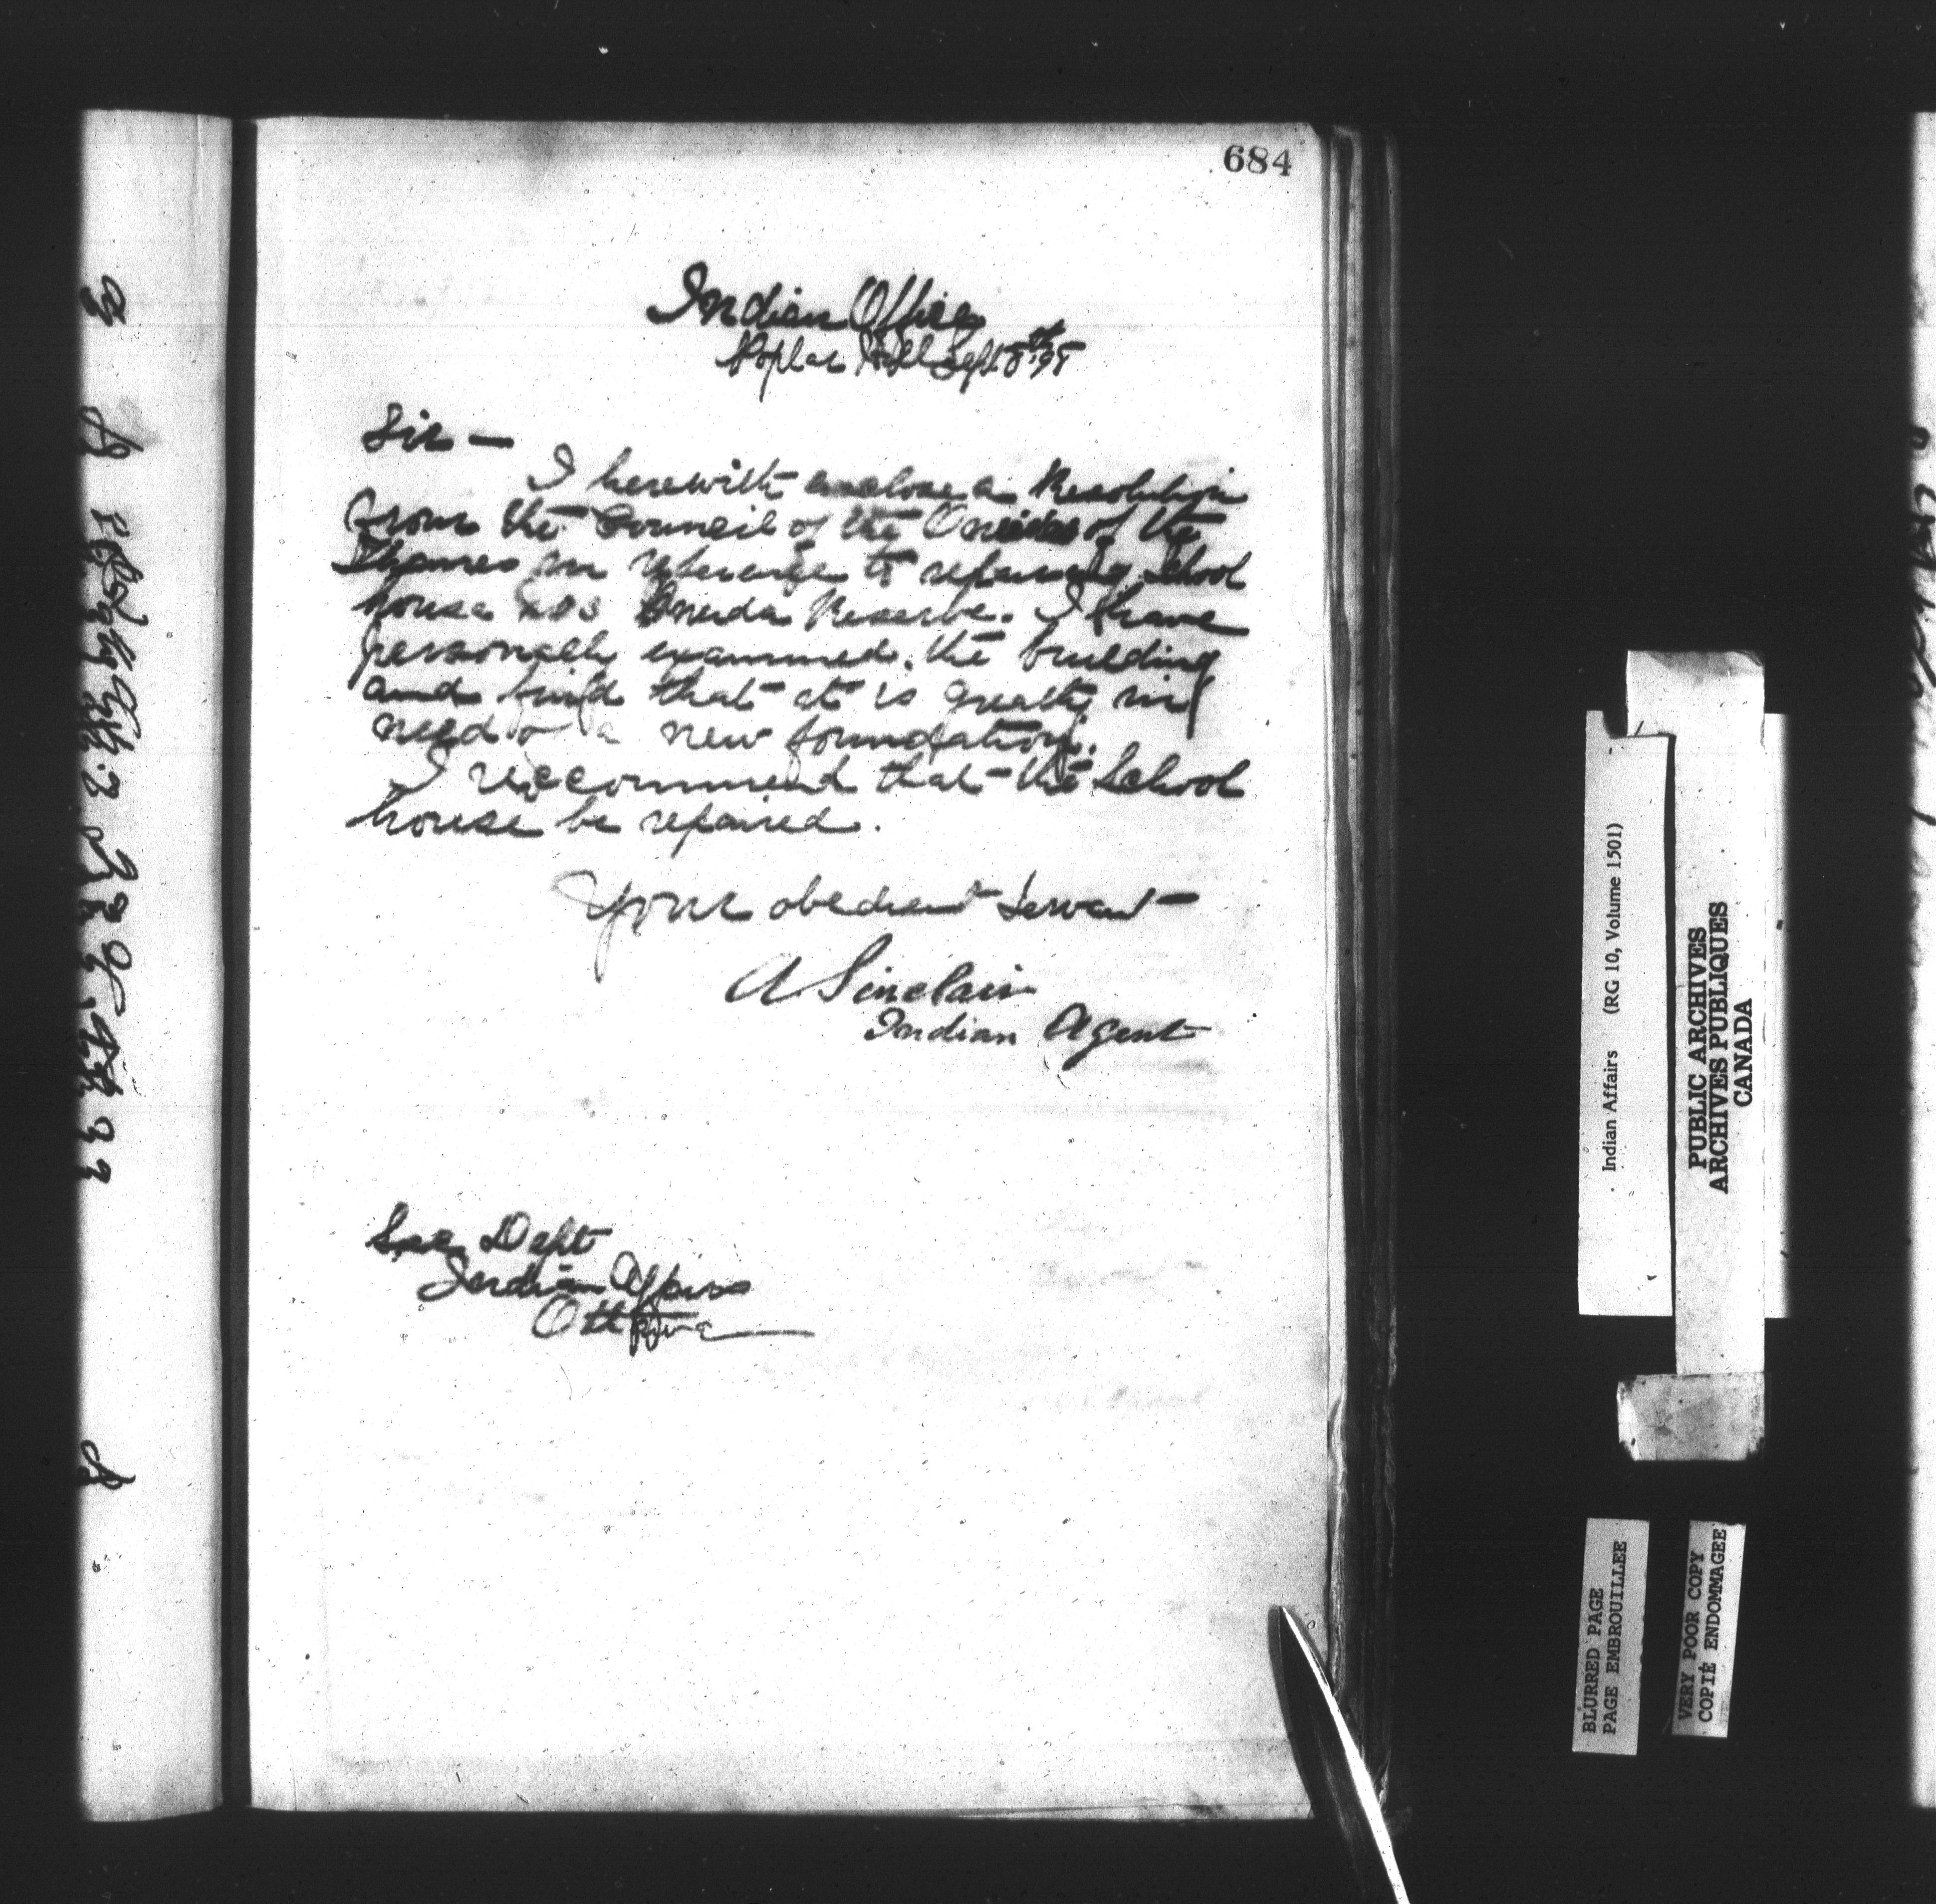 684
Indian Office
Poplar Hill Sept. 8th '98
Sir —
I herewith enclose a Resolution
from the Council of the Oneidas of the
Thames in reference to repairing School
house No 3 Oneida Reserve. I have
personally examined the building
and find that it is greatly in
need of a new foundation.
I reccommend that the School
house be repaired.
Your obedient Servant
A Sinclair
Indian Agent
Sec. Dept
Indian Affairs
Ottawa
Indian Affairs (RG 10, Volume 1501)
PUBLIC ARCHIVES
ARCHIVES PUBLIQUES
CANADA
BLURRED PAGE
PAGE EMBROUILLEE
VERY POOR COPY
COPIÉ ENDOMMAGEE